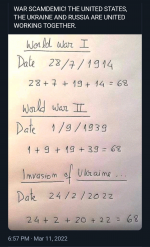 WAR SCAMDEMIC! THE UNITED STATES,
THE UKRAINE AND RUSSIA ARE UNITED
WORKING TOGETHER.
World War I
Date 28/7/1914
28+7+19+14=68
World War II
Date 1/9/1939
1+9+19+39=68
Invasion of Ukraine...
Date 24/2/2022
24+2+20+22=68
6:57 PM · Mar 11, 2022